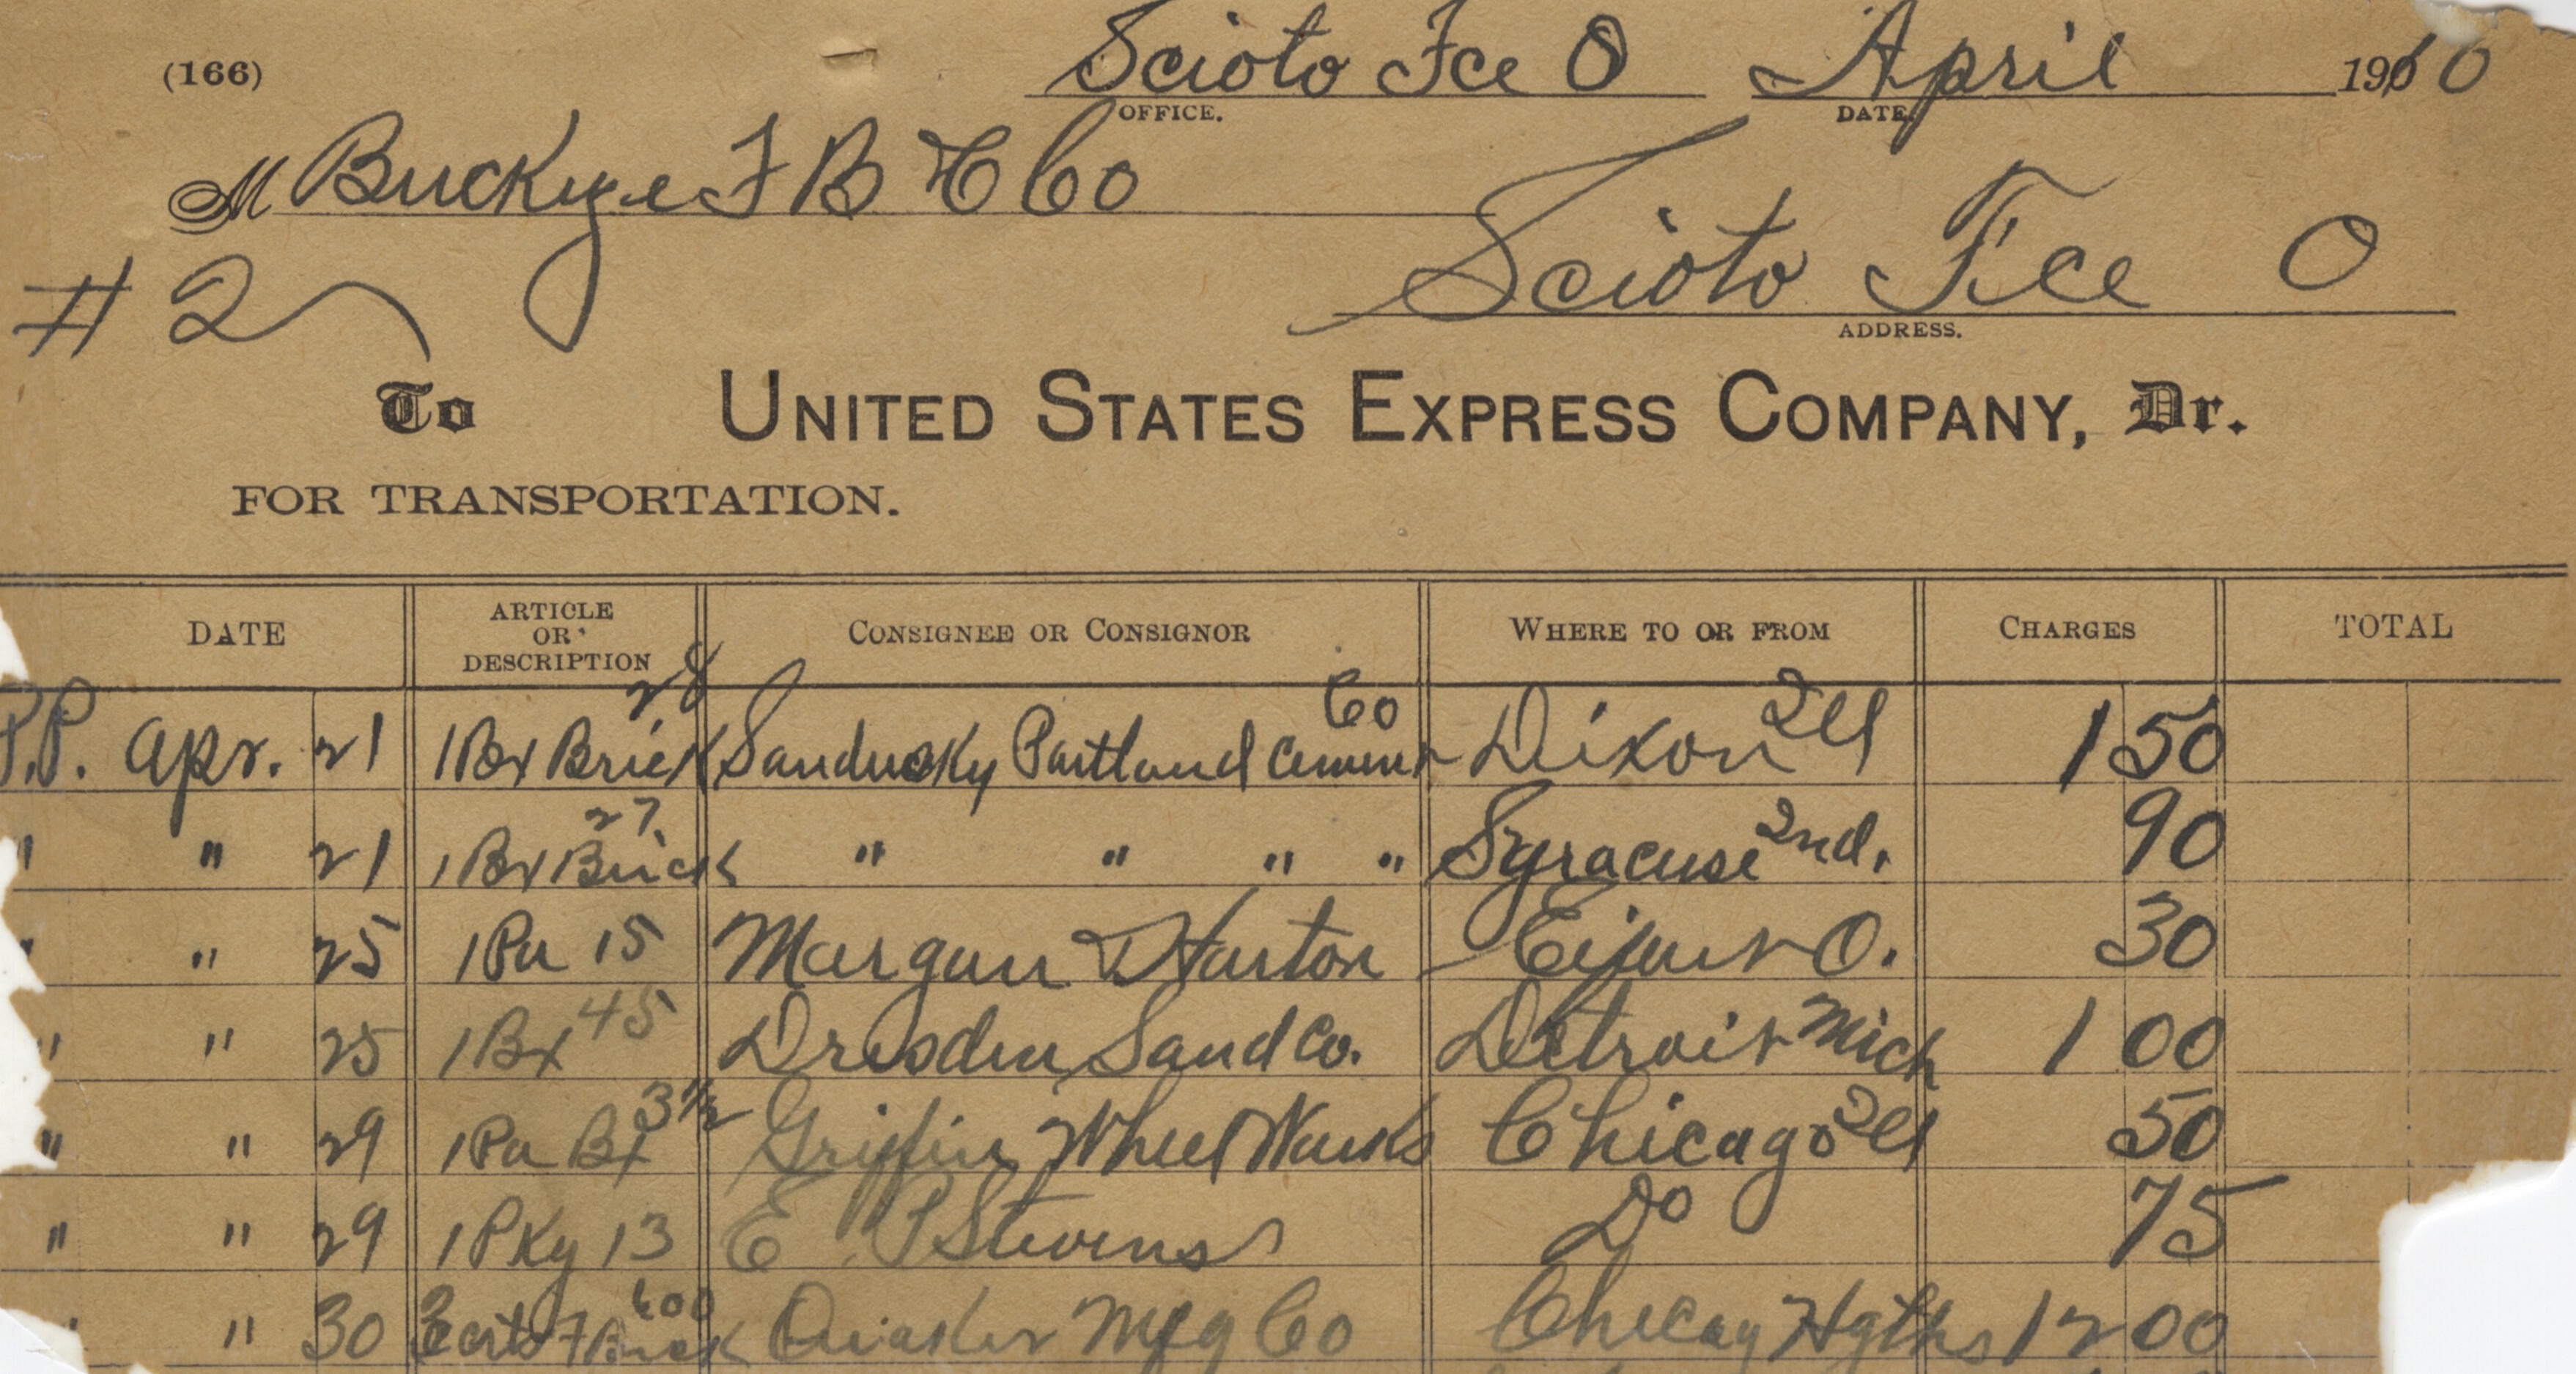 (166) Scioto Fce O April 1910
OFFICE. DATE
M Buckeye F B & Co
# 2 Scioto Fce O
ADDRESS.
To UNITED STATES EXPRESS COMPANY, Dr.
FOR TRANSPORTATION.
DATE ARTICLE OR DESCRIPTION CONSIGNEE OR CONSIGNOR WHERE TO OR FROM CHARGES TOTAL
P.P. Apr. 21 1 Bx Brick 28 Sandusky Portland Cement Co Dixon Ill 1 50
" " 21 1 Bx Brick 27 " " " " Syracuse Ind. 90
" " 25 1 Pa 15 Morgan Horton O. 30
" " 25 1 Bx 45 Dresden Sand Co. Detroit Mich 1 00
" " 29 1 Pa Bx 3 1/2 Griffin Wheel Works Chicago Ill 50
" " 29 1 Pkg 13 E P Stevens Do 75
" " 30 F Brick 600 Quaker Mfg Co Chicag Hgths 12 00